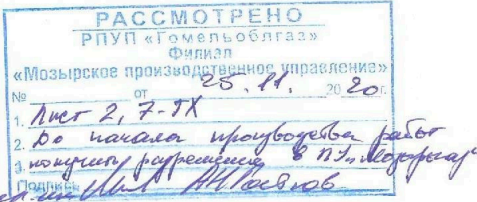 РАССМОТРЕНО
РПУП «Гомельоблгаз»
Филиал
«Мозырское производственное управление»
№ от 25.11. 2020г.
1. Лист 2, 7-ГХ
2. До начала производства работ
3. получить разрешение в ПУ „Мозырьгаз"
Подпись